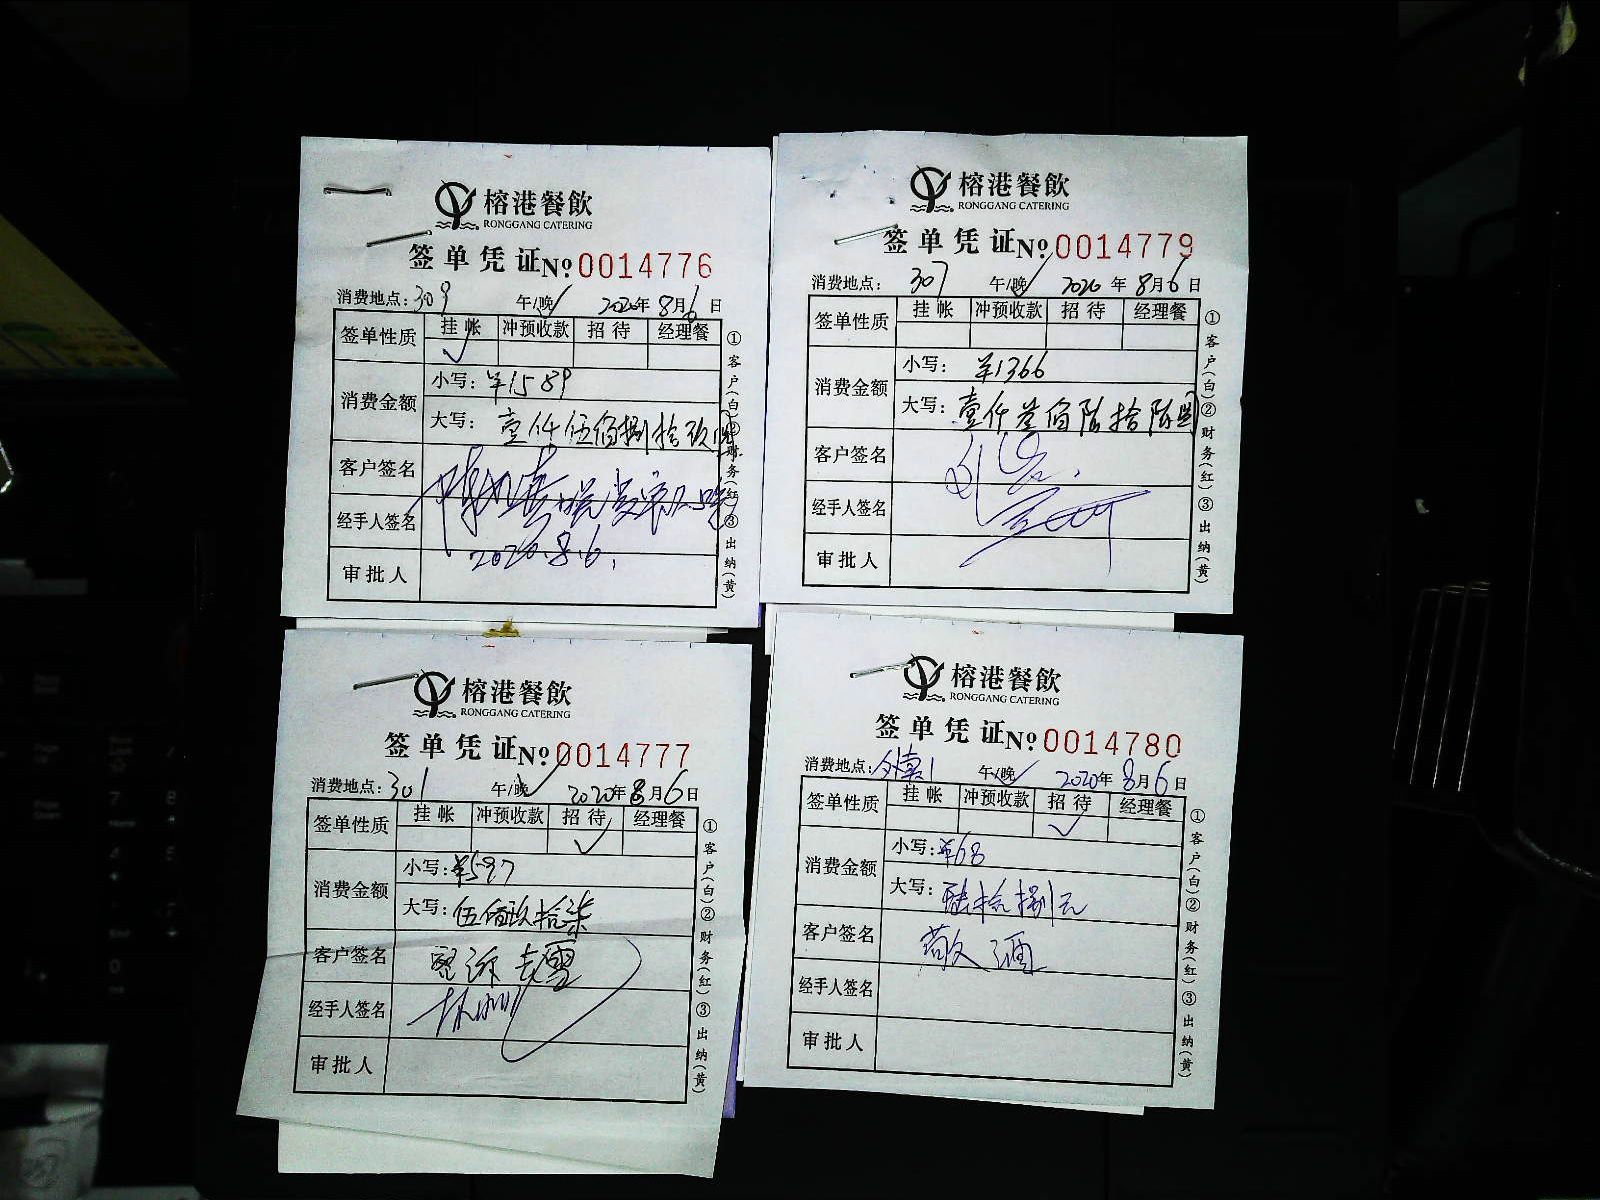 榕港餐飲
RONGGANG CATERING
签单凭证 No 0014776
消费地点: 309 午/晚 2020年8月6日
签单性质 挂帐 冲预收款 招待 经理餐
✓
消费金额
小写: ¥1589
大写: 壹仟伍佰捌拾玖圆
客户签名
经手人签名
2020.8.6.
审批人
①客户(白)②财务(红)③出纳(黄)
榕港餐飲
RONGGANG CATERING
签单凭证 No 0014779
消费地点: 307 午/晚 2020年8月6日
签单性质 挂帐 冲预收款 招待 经理餐
消费金额
小写: ¥1366
大写: 壹仟叁佰陆拾陆圆
客户签名
经手人签名
审批人
①客户(白)②财务(红)③出纳(黄)
榕港餐飲
RONGGANG CATERING
签单凭证 No 0014777
消费地点: 301 午/晚 2020年8月6日
签单性质 挂帐 冲预收款 招待 经理餐
✓
消费金额
小写: ¥597
大写: 伍佰玖拾柒
客户签名
经手人签名
审批人
①客户(白)②财务(红)③出纳(黄)
榕港餐飲
RONGGANG CATERING
签单凭证 No 0014780
消费地点: 午/晚 2020年8月6日
签单性质 挂帐 冲预收款 招待 经理餐
✓
消费金额
小写: ¥68
大写: 陆拾捌元
客户签名 敬酒
经手人签名
审批人
①客户(白)②财务(红)③出纳(黄)